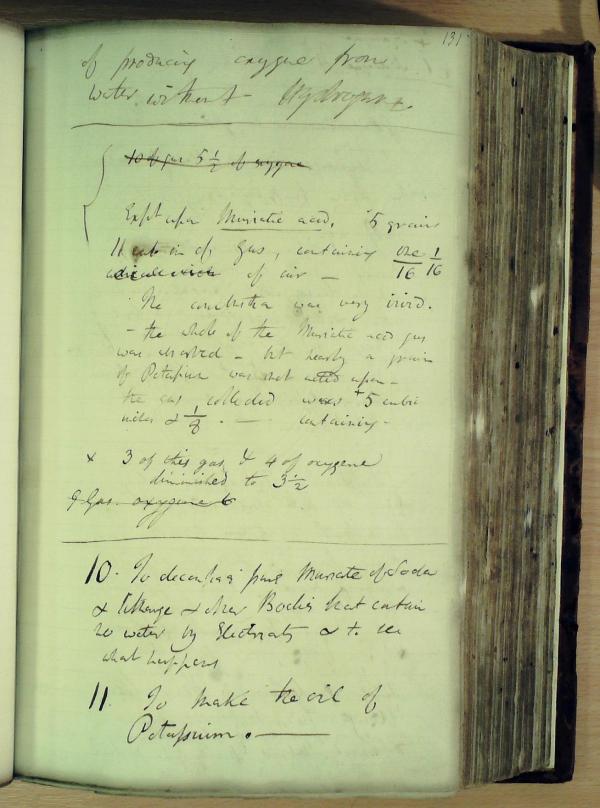 131
of producing oxygene from
water without Hydrogene.
10 of gas 5 1/2 of oxygene
Expt upon Muriatic acid. 5 grains
11 cub in of gas, containing one/16 1/16
of air —
The combustion was very vivid.
- the whole of the Muriatic acid gas
was absorbed - but nearly a grain
of Potassium was not acted upon -
the gas collected was + 5 cubic
inches & 1/8 . — containing -
x 3 of this gas & 4 of oxygene
diminished to 3 1/2
9 Gas. oxygene 6
10. To decompose pure Muriate of Soda
& litharge & other Bodies that contain
no water by Electricity & to see
what happens
11. To make the oil of
Potassium. —